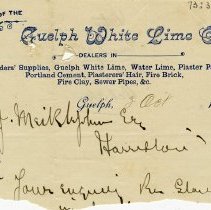 OF THE
Guelph White Lime C
DEALERS IN
ders' Supplies, Guelph White Lime, Water Lime, Plaster P
Portland Cement, Plasterers' Hair, Fire Brick,
Fire Clay, Sewer Pipes, &c.
Guelph, Oct 1
J. Meiklejohn Esq
Hamilton
Your enquiry Re